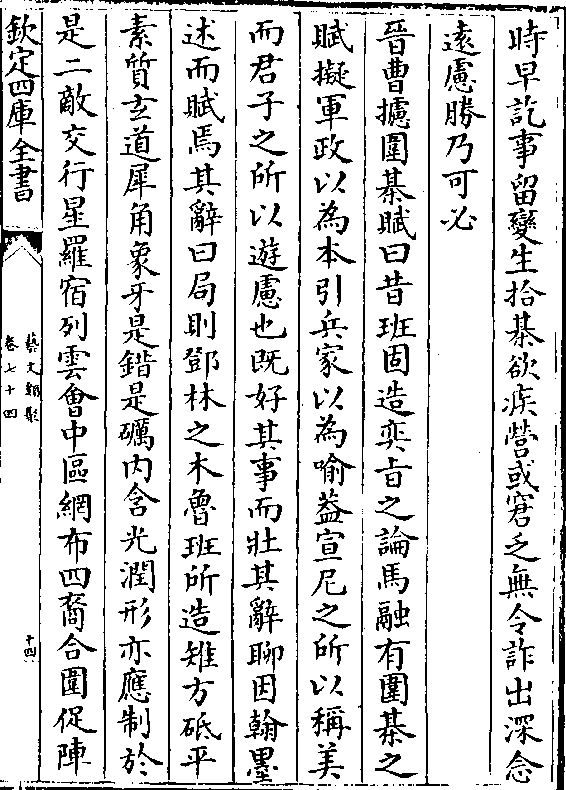 時早訖事留變生拾棊欲疾營或窘乏無令詐出深念
遠慮勝乃可必
晉曹攄圍棊賦曰昔班固造奕㫖之論馬融有圍棊之
賦擬軍政以為本引兵家以為喻葢宣尼之所以稱美
而君子之所以遊慮也既好其事而壯其辭聊因翰墨
述而賦焉其辭曰局則鄧林之木魯班所造雉方砥平
素質玄道犀角象牙是錯是礪内含光潤形亦應制於
是二敵交行星羅宿列雲㑹中區網布四裔合圍促陣
欽定四庫全書
藝文類聚
卷七十四
十四